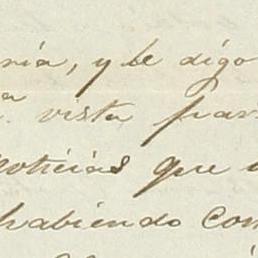 ria, y le digo
vista par
noticias que
habiendo con